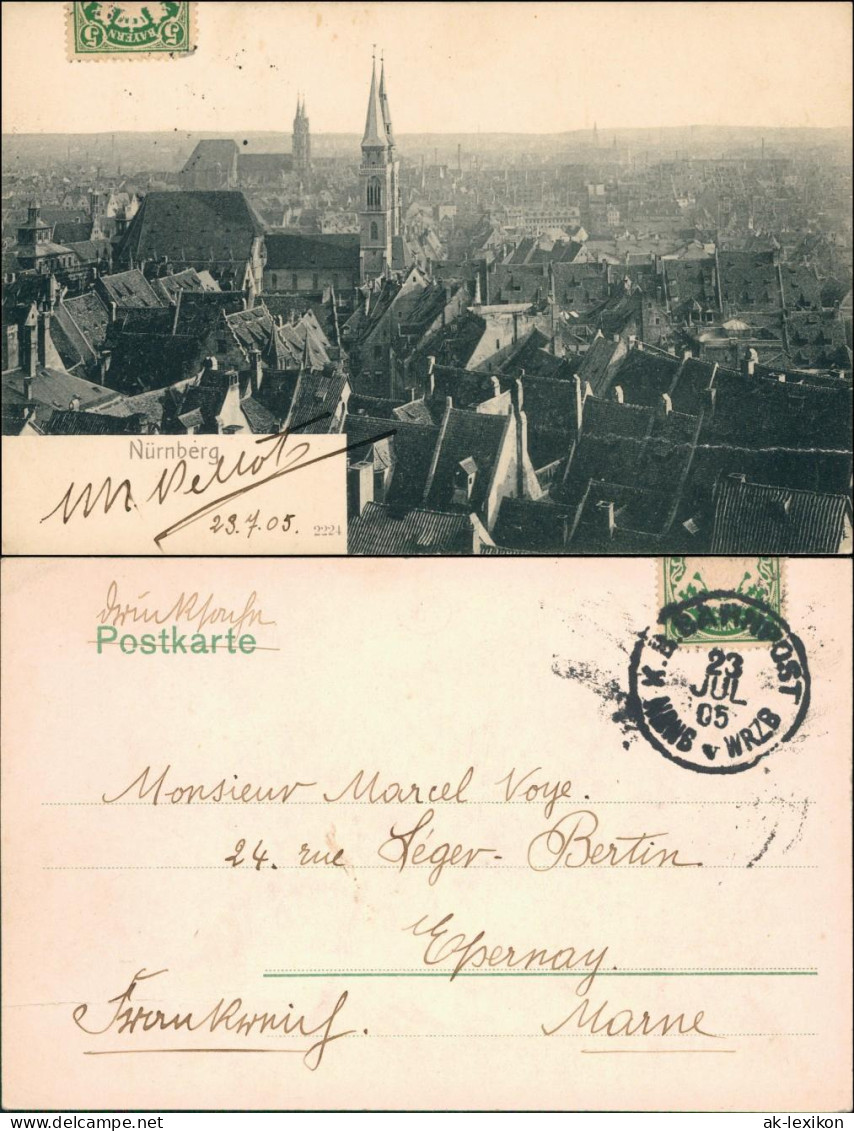 5 BAYERN 5
Nürnberg
23.7.05.
2224
Drucksache
Postkarte
K.B. BAHNPOST
23
JUL
05
NÜRNB v WRZB
Monsieur Marcel Voye.
24. rue Léger-Bertin.
Epernay.
Frankreich. Marne
ak-lexikon ak-lexikon.com